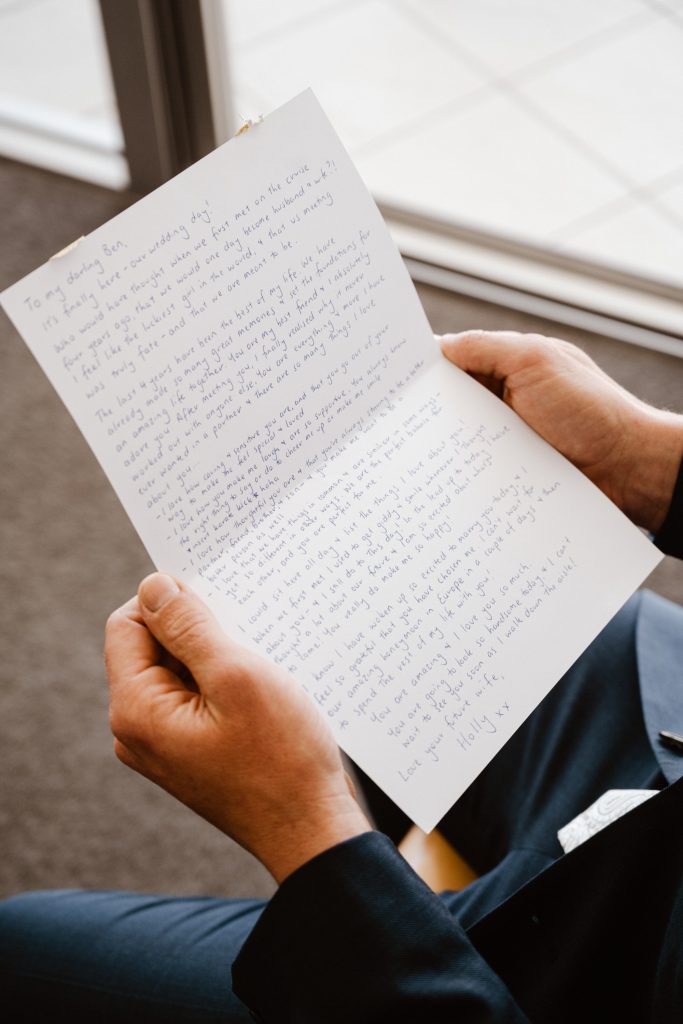 To my darling Ben,
It's finally here - our wedding day!
Who would have thought when we first met on the cruise
four years ago, that we would one day become husband & wife?!
I feel like the luckiest girl in the world, & that us meeting
was truly fate - and that we are meant to be.
The last 4 years have been the best of my life. We have
already made so many great memories & set the foundations for
an amazing life together. You are my best friend & I absolutely
adore you. After meeting you, I finally realised why it never
worked out with anyone else. You are everything & more I have
ever wanted in a partner & there are so many things I love
about you...
- I love how caring & sensitive you are, and that you go out of your
way to make me feel special & loved
- I love how you make me laugh & are so supportive. You always know
the right thing to say or do to cheer me up or make me smile
- I love how thoughtful you are & that you're always striving to be a better
partner, friend, brother & son - & you make me want to be a
better person as well
- I love that we have things in common & are similar in some ways -
yet so different in other ways. We are the perfect balance for
each other, and you are perfect for me.
I could sit here all day & list the things I love about you!
When we first met I used to get giddy & smile whenever I thought
about you - & I still do to this day. In the lead up to today I have
thought a lot about our future & I am so excited about what's
to come. You really do make me so happy!
I know I have woken up so excited to marry you today & I
feel so grateful that you have chosen me. I can't wait for
our amazing honeymoon in Europe in a couple of days & then
to spend the rest of my life with you.
You are amazing & I love you so much.
You are going to look so handsome today & I can't
wait to see you soon as I walk down the aisle!
Love your future wife,
Holly xx